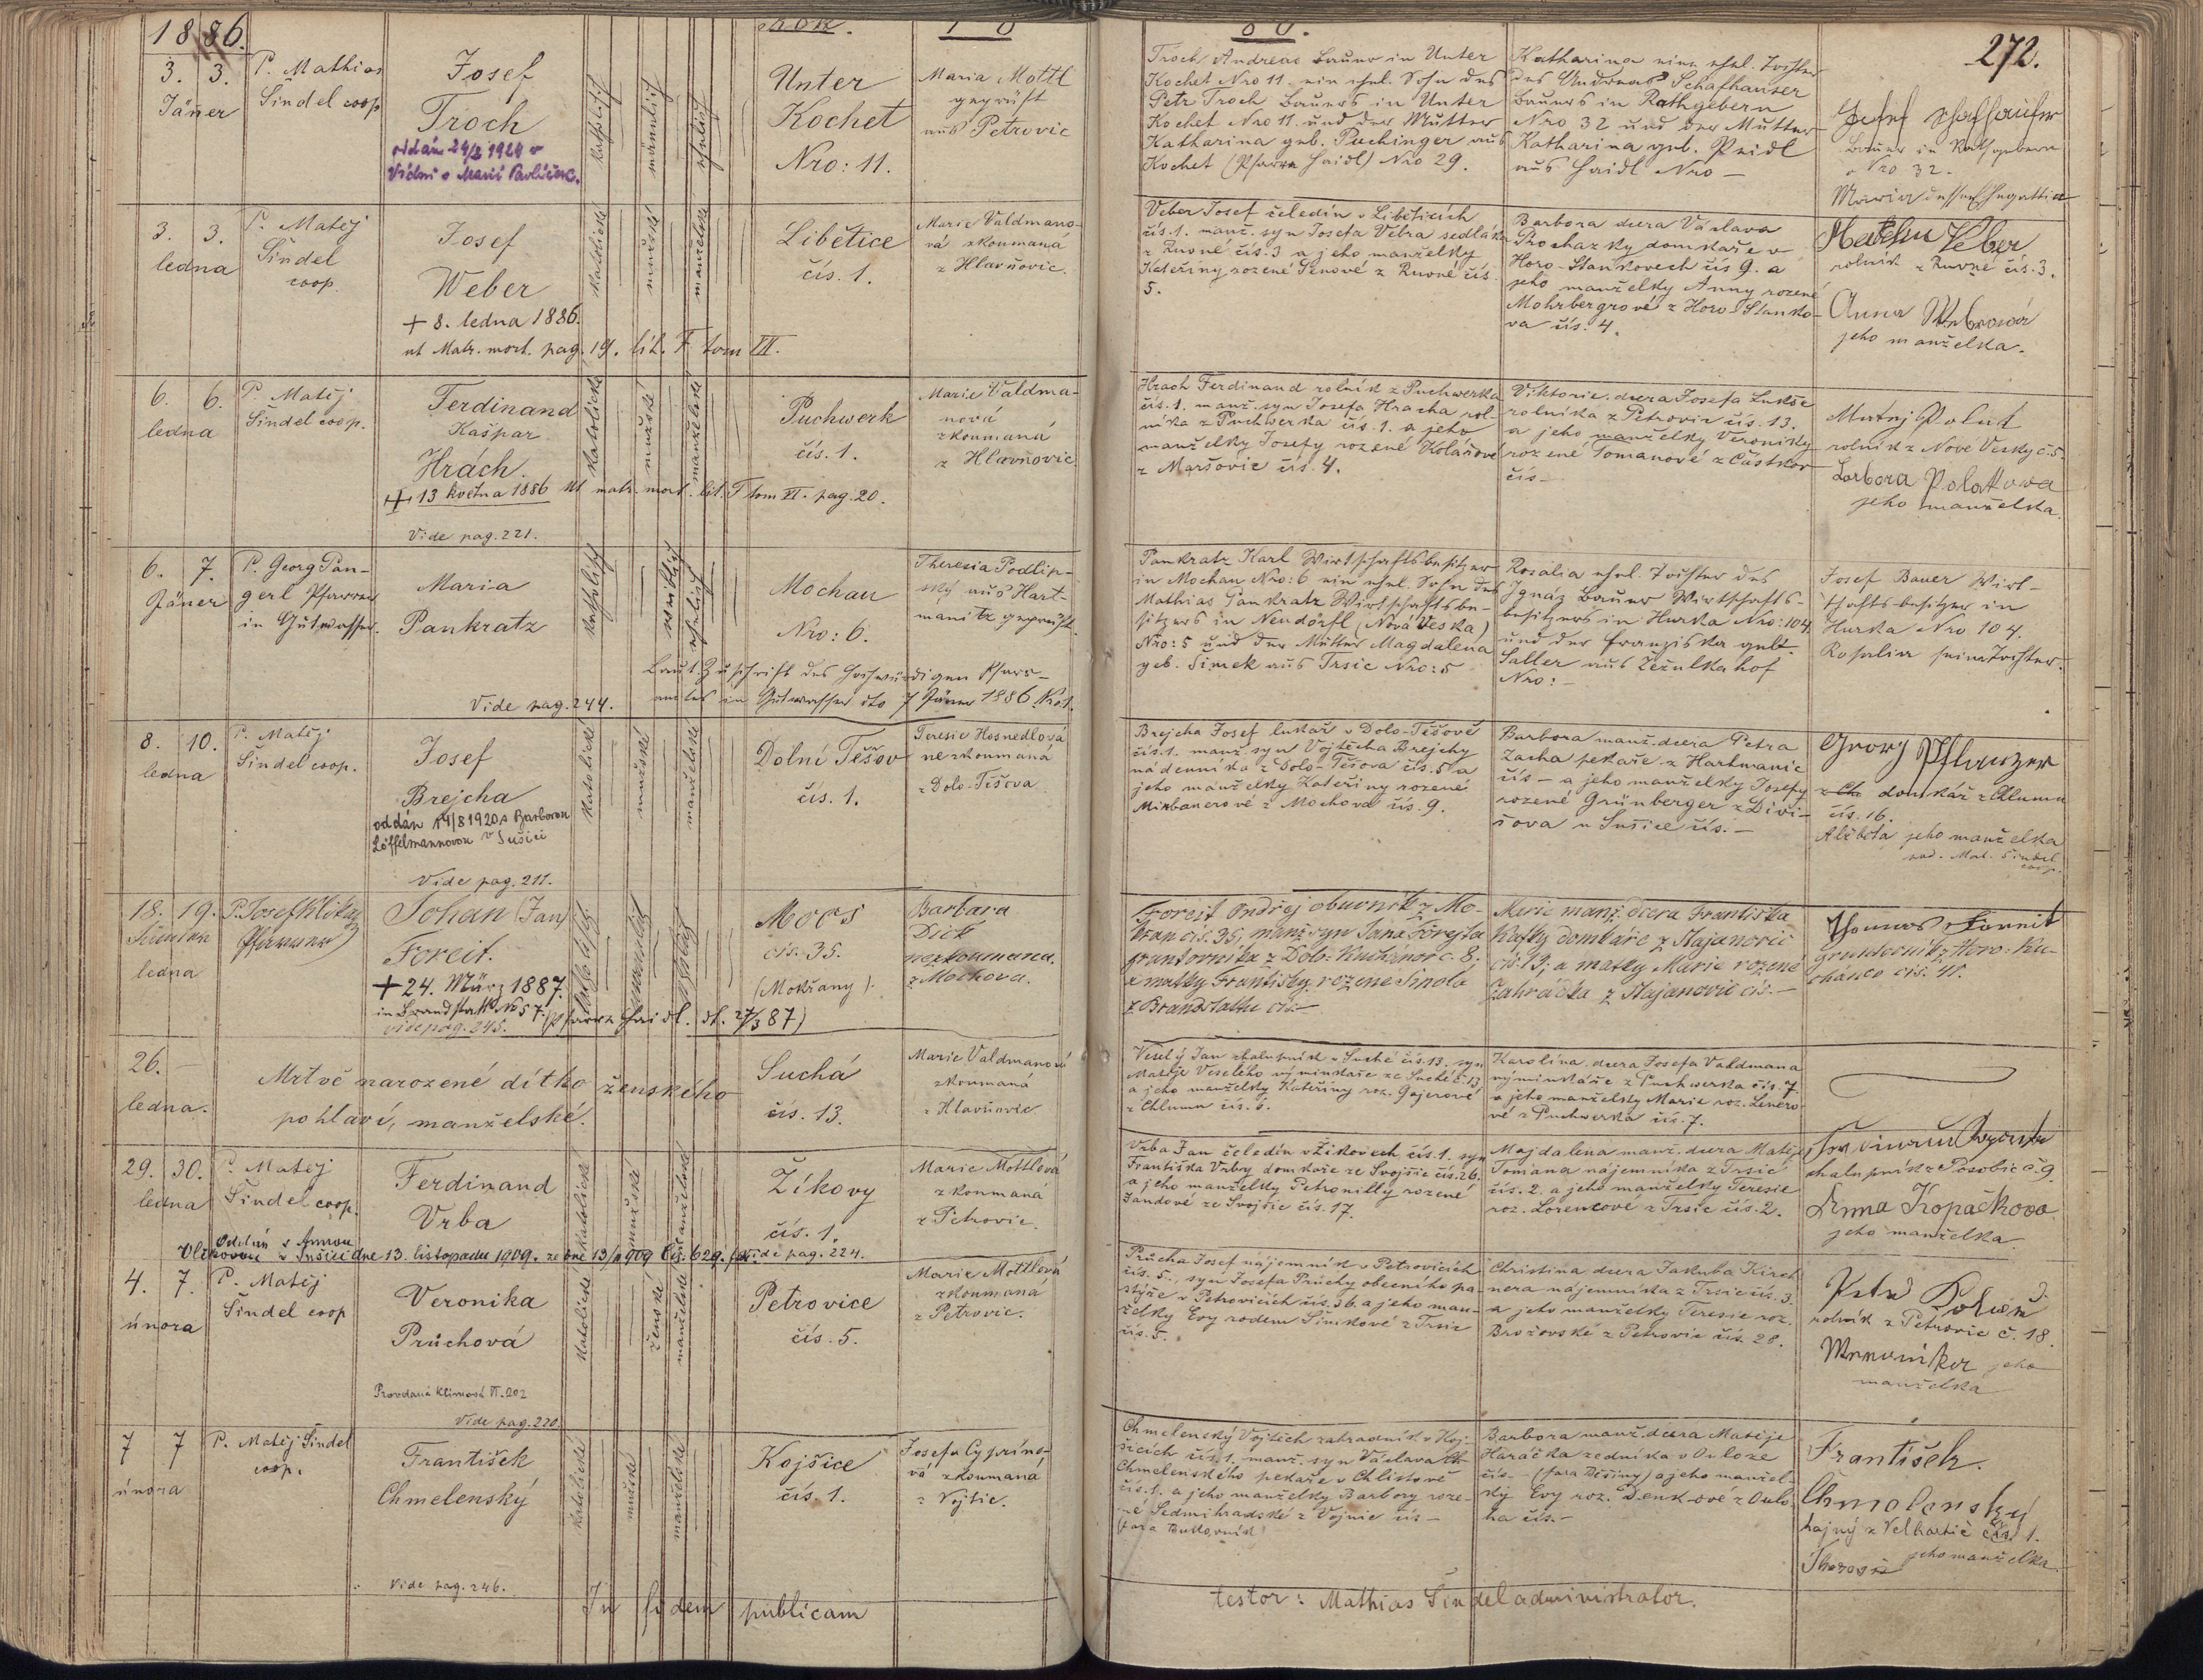 1886.
272.
3. 3.
Jäner
P. Mathias
Šindel coop
Josef
Troch
oddán 24/2 1924 v
Vídni s Marií
katholisch
männlich
ehelich
Unter
Kochet
Nro: 11.
Maria Mottl
geprüft
aus Petrovic
Troch Andreas Bauer in Unter
Kochet Nro 11. ein ehel. Sohn des
Petr Troch Bauers in Unter
Kochet Nro 11. und der Mutter
Katharina geb. Puchinger aus
Kochet (Pfarre Haidl) Nro 29.
Katharina eine ehel. Tochter
des Andreas Schafhauser
Bauers in Rathgebern
Nro 32 und der Mutter
Katharina geb. Peidl
aus Haidl Nro —
Josef Schafhauser
Bauer in Rathgebern
Nro 32.
Maria dessen Ehegattin
3. 3.
ledna
P. Matěj
Šindel
coop.
Josef
Weber
+ 8. ledna 1886.
ut Matr. mort. pag. 19. lit. F tom VI.
katolické
mužské
manželské
Libětice
čís. 1.
Marie Valdmano-
vá zkoumaná
z Hlavňovic.
Veber Josef čeledín v Liběticích
čís. 1. manž. syn Josefa Vebra sedláka
z Rovné čís. 3 a jeho manželky
Kateřiny rozené Šenové z Rovné čís.
5.
Barbora dcera Václava
Procházky domkaře v
Horo-Stankovech čís 9. a
jeho manželky Anny rozené
Mohrbergrové z Horo-Stanko-
va čís. 4.
Veber
rolník z Rovné čís. 3.
Anna Webrowá
jeho manželka.
6. 6.
ledna
P. Matěj
Šindel coop.
Ferdinand
Kašpar
Hrách.
+ 13 května 1886 ut matr. mort. lit. F tom VI. pag. 20.
Vide pag. 221.
katolické
mužské
manželské
Puchwerk
čís. 1.
Marie Valdma-
nová
zkoumaná
z Hlavňovic
Hrach Ferdinand rolník z Puchwerka
čís. 1. manž. syn Josefa Hracha rol-
níka z Puchwerka čís. 1. a jeho
manželky Josefy rozené Kolářové
z Maršovic čís. 4.
Viktorie dcera Josefa Lukše
rolníka z Petrovic čís. 13.
a jeho manželky Veroniky
rozené Tomanové z Částkov
čís —
Matěj Polak
rolník z Nove Vesky č. 5.
Barbora Polakowa
jeho manželka.
6. 7.
Jäner
P. Georg Pan-
gerl Pfarrer
in Gutwasser.
Maria
Pankratz
Vide pag. 244.
katholisch
weiblich
ehelich
Mochau
Nro: 6.
Theresia Podlip-
sky aus Hart-
manitz geprüft.
Laut Zuschrift des hochwürdigen Pfarr-
amtes in Gutwasser dto 7 Jäner 1886 No 1.
Pankratz Karl Wirtschaftsbesitzer
in Mochau Nro: 6 ein ehel. Sohn des
Mathias Pankratz Wirtschaftsbe-
sitzers in Neudörfl (Nová Veska)
Nro: 5 und der Mutter Magdalena
geb. Šimek aus Trsic Nro: 5
Rosalia ehel. Tochter des
Ignaz Bauer Wirtschafts-
besitzers in Hurka Nro: 104
und der Franziska geb.
Saller aus Zežulka hof
Nro: —
Josef Bauer Wirt-
schafts-besitzer in
Hurka Nro 104.
Rosalia seine Tochter.
8. 10.
ledna
P. Matěj
Šindel coop.
Josef
Brejcha
oddán 14/8 1920 s Barborou
Löffelmannovou v Sušici
Vide pag. 211.
katolické
mužské
manželské
Dolní Těšov
čís. 1.
Teresie Hosnedlová
nezkoumaná
z Dolo-Těšova
Brejcha Josef lukař v Dolo-Těšově
čís. 1. manž. syn Vojtěcha Brejchy
nádenníka z Dolo-Těšova čís. 5 a
jeho manželky Kateřiny rozené
Mirbanerové z Mochova čís. 9.
Barbora manž. dcera Petra
Zacha pekaře z Hartmanic
čís — a jeho manželky Josefy
rozené Grünberger z Divi-
šova u Sušice čís. —
Georg Pflanzer
domkář z Chlumu
čís. 16.
Alžběta jeho manželka
pod. Mat. Šindel
coop.
18. 19.
ledna
P. Josef
Pfarrer
Johan (Jan)
Foreit.
+ 24. März 1887.
in Brandstatt No 57. (Pfarre Haidl. dt. 27/3 87)
vide pag. 245.
Moos
čís. 35.
(Mokřany).
Barbara
Dick
nezkoumaná.
z Mochova.
Foreit Ondřej obuvník z Mo-
křan čís. 35, manž. syn Jana Forejta
gruntovníka z Dolo-Kochánov č. 8.
a matky Františky rozené Šmola
z Brandstattu čís. —
Marie manž. dcera Františka
Kafky domkáře z Stajanovic
čís. 13; a matky Marie rozené
Zahrádka z Stajanovic čís. —
Thomas Forreit
gruntovník z Horo. Ko-
chánov čís. 41.
26. —
ledna.
Mrtvě narozené dítko ženského
pohlaví, manželské.
Suchá
čís. 13.
Marie Valdmanová
zkoumaná
z Hlavňovic
Veselý Jan chalupník v Suché čís. 13. syn
Matěje Veselého výminkaře ze Suché č. 13
a jeho manželky Kateřiny roz. Gajerové
z Chlumu čís. 6.
Karolína dcera Josefa Valdmana
výminkáře z Puchwerka čís. 7
a jeho manželky Marie roz. Lenero-
vé z Puchwerka čís. 7.
29. 30.
ledna
P. Matěj
Šindel coop.
Ferdinand
Vrba
Oddán s Annou
Vlčkovou v Sušici dne 13. listopadu 1909.
Vide pag. 224.
katolické
mužské
manželské
Žíkovy
čís. 1.
Marie Mottlová
zkoumaná
z Petrovic.
Vrba Jan čeledín v Žíkovech čís. 1. syn
Františka Vrby domkaře ze Svojšic čís. 26.
a jeho manželky Petronilly rozené
Jandové ze Svojšic čís. 17.
Majdalena manž. dcera Matěje
Tomana nájemníka z Trsic
čís. 2. a jeho manželky Teresie
roz. Lorencové z Trsic čís. 2.
chalupník z Posobic č. 9.
Anna Kopačkova
jeho manželka.
4. 7.
února
P. Matěj
Šindel coop
Veronika
Průchová
Provdaná Klímová VI. 202
Vide pag. 220.
katolické
ženské
manželské
Petrovice
čís. 5.
Marie Mottlová
zkoumaná
z Petrovic.
Průcha Josef nájemník v Petrovicích
čís. 5., syn Josefa Průchy obecního pa-
stýře v Petrovicích čís. 36. a jeho man-
želky Evy rodem Šimkové z Trsic
čís. 5.
Christina dcera Jakuba Kirch
nera nájemníka z Trsic čís. 3.
a jeho manželky Teresie roz.
Brožovské z Petrovic čís. 28.
rolník z Petrovic č. 18.
jeho
manželka
7 7
února
P. Matěj Šindel
coop.
František
Chmelenský
Vide pag. 246.
katolické
mužské
manželské
Kojšice
čís. 1.
Josefa Cypríno-
vá zkoumaná
z Vojtic.
Chmelenský Vojtěch zahradník v Koj-
šicích čís. 1. manž. syn Václava
Chmelenského pekaře v Chlistově
čís. 1. a jeho manželky Barbory roze-
né Sedmihradské z Vojnic čís —
Barbora manž. dcera Matěje
Haráčka zedníka v Ouloze
čís. — (fara Běšiny) a jeho manžel-
ky Evy roz. Denkové z Oulo-
ha čís. —
František.
Chmelenský
hajný z Velhartic čís. 1.
jeho manželka
In fidem publicam
testor: Mathias Šindel administrator.